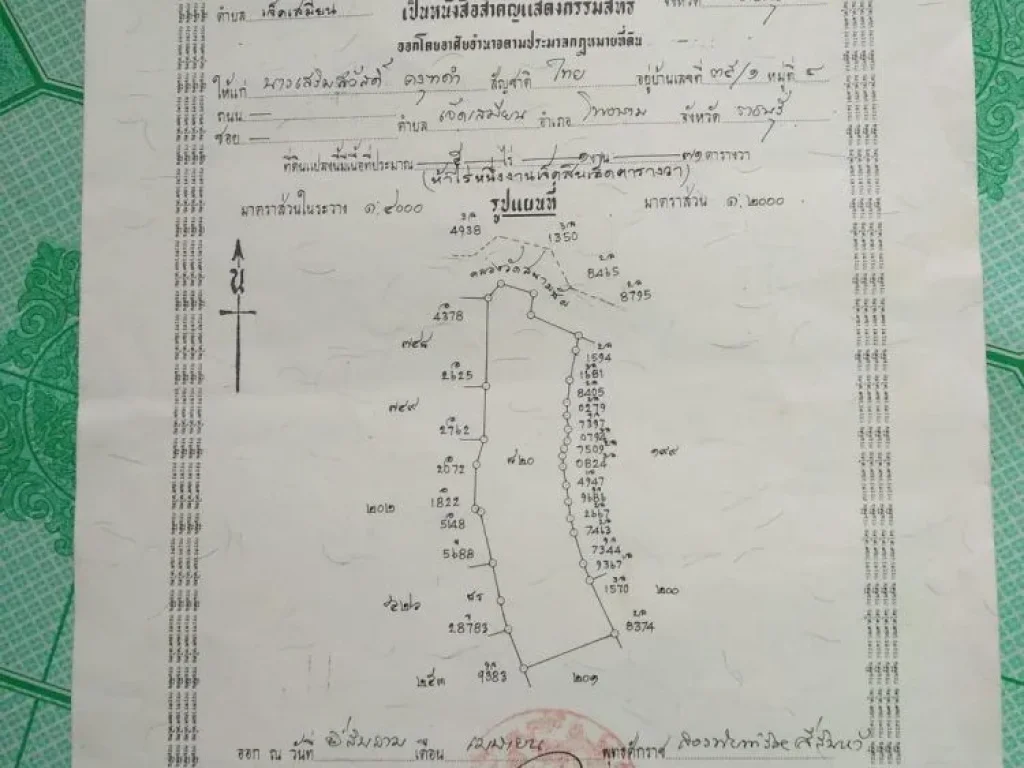 ตำบล เจ็ดเสมียน เป็นหนังสือสำคัญแสดงกรรมสิทธิ์ จังหวัด
ออกโดยอาศัยอำนาจตามประมวลกฎหมายที่ดิน
ให้แก่ นางเสงี่ยมสวัสดิ์ สัญชาติ ไทย อยู่บ้านเลขที่ ๓๕/๑ หมู่ที่ ๔
ถนน — ตำบล เจ็ดเสมียน อำเภอ โพธาราม จังหวัด ราชบุรี
ซอย —
ที่ดินแปลงนี้มีเนื้อที่ประมาณ ๕ ไร่ ๑ งาน ๗๑ ตารางวา
(ห้าไร่หนึ่งงานเจ็ดสิบเอ็ดตารางวา)
มาตราส่วนในระวาง ๑:๔๐๐๐ รูปแผนที่ มาตราส่วน ๑:๒๐๐๐
4938 1350
8465
8795
คลองวัดสนามชัย
น
4378
1594
๗๔๘
1681
2625
8405
0279
๗๔๙
7397
2762
0792
7509
๗๒๐
๑๙๙
2072
0824
4947
1822
9686
๒๐๒
2667
5148
7463
5688
7344
9367
1570
๒๐๐
28783
8374
๒๕๓
9983
๒๐๑
ออก ณ วันที่ ยี่สิบสาม เดือน เมษายน พุทธศักราช